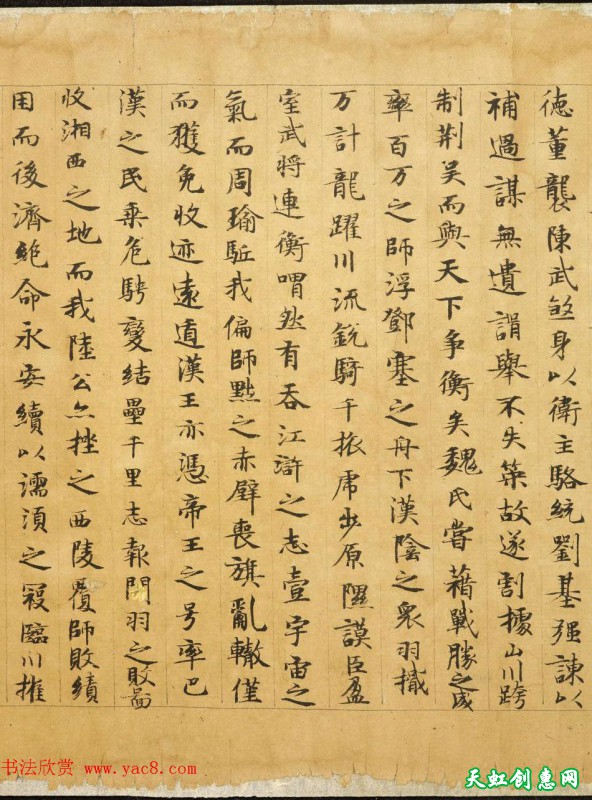 德董襲陳武煞身以衛主駱統劉基强諫以
補過謀無遺諝舉不失策故遂割據山川跨
制荆吴而與天下争衡矣魏氏甞藉戰勝之威
率百万之師浮鄧塞之舟下漢陰之衆羽檝
万計龍躍川流銳騎千旅虎步原隰謨臣盈
室武將連衡喟然有吞江滸之志壹宇宙之
氣而周瑜駈我偏師黜之赤壁喪旗亂轍僅
而獲免收迹遠遁漢王亦憑帝王之号率巴
漢之民乘危騁變結壘千里志報關羽之敗啚
收湘西之地而我陸公亦挫之西陵覆師敗績
困而後濟絕命永安續以濡湏之寇臨川摧
书法欣赏 www.yac8.com
天虹创惠网